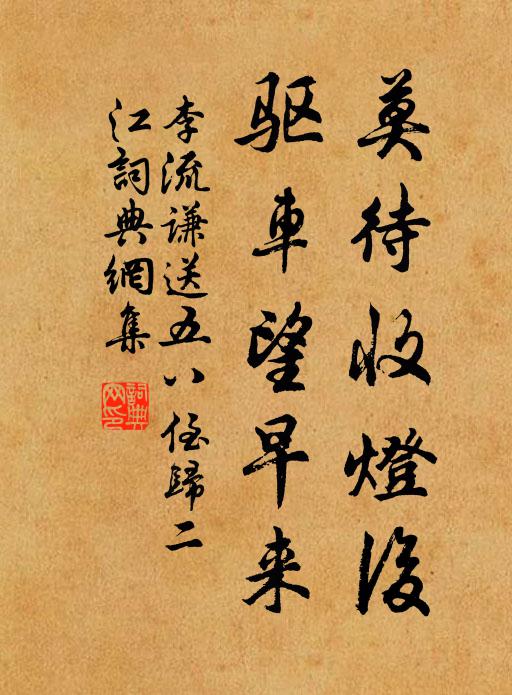 莫待收燈後
驱車望早来
李流謙送五八侄歸二
江詞典網集
詞典
网印